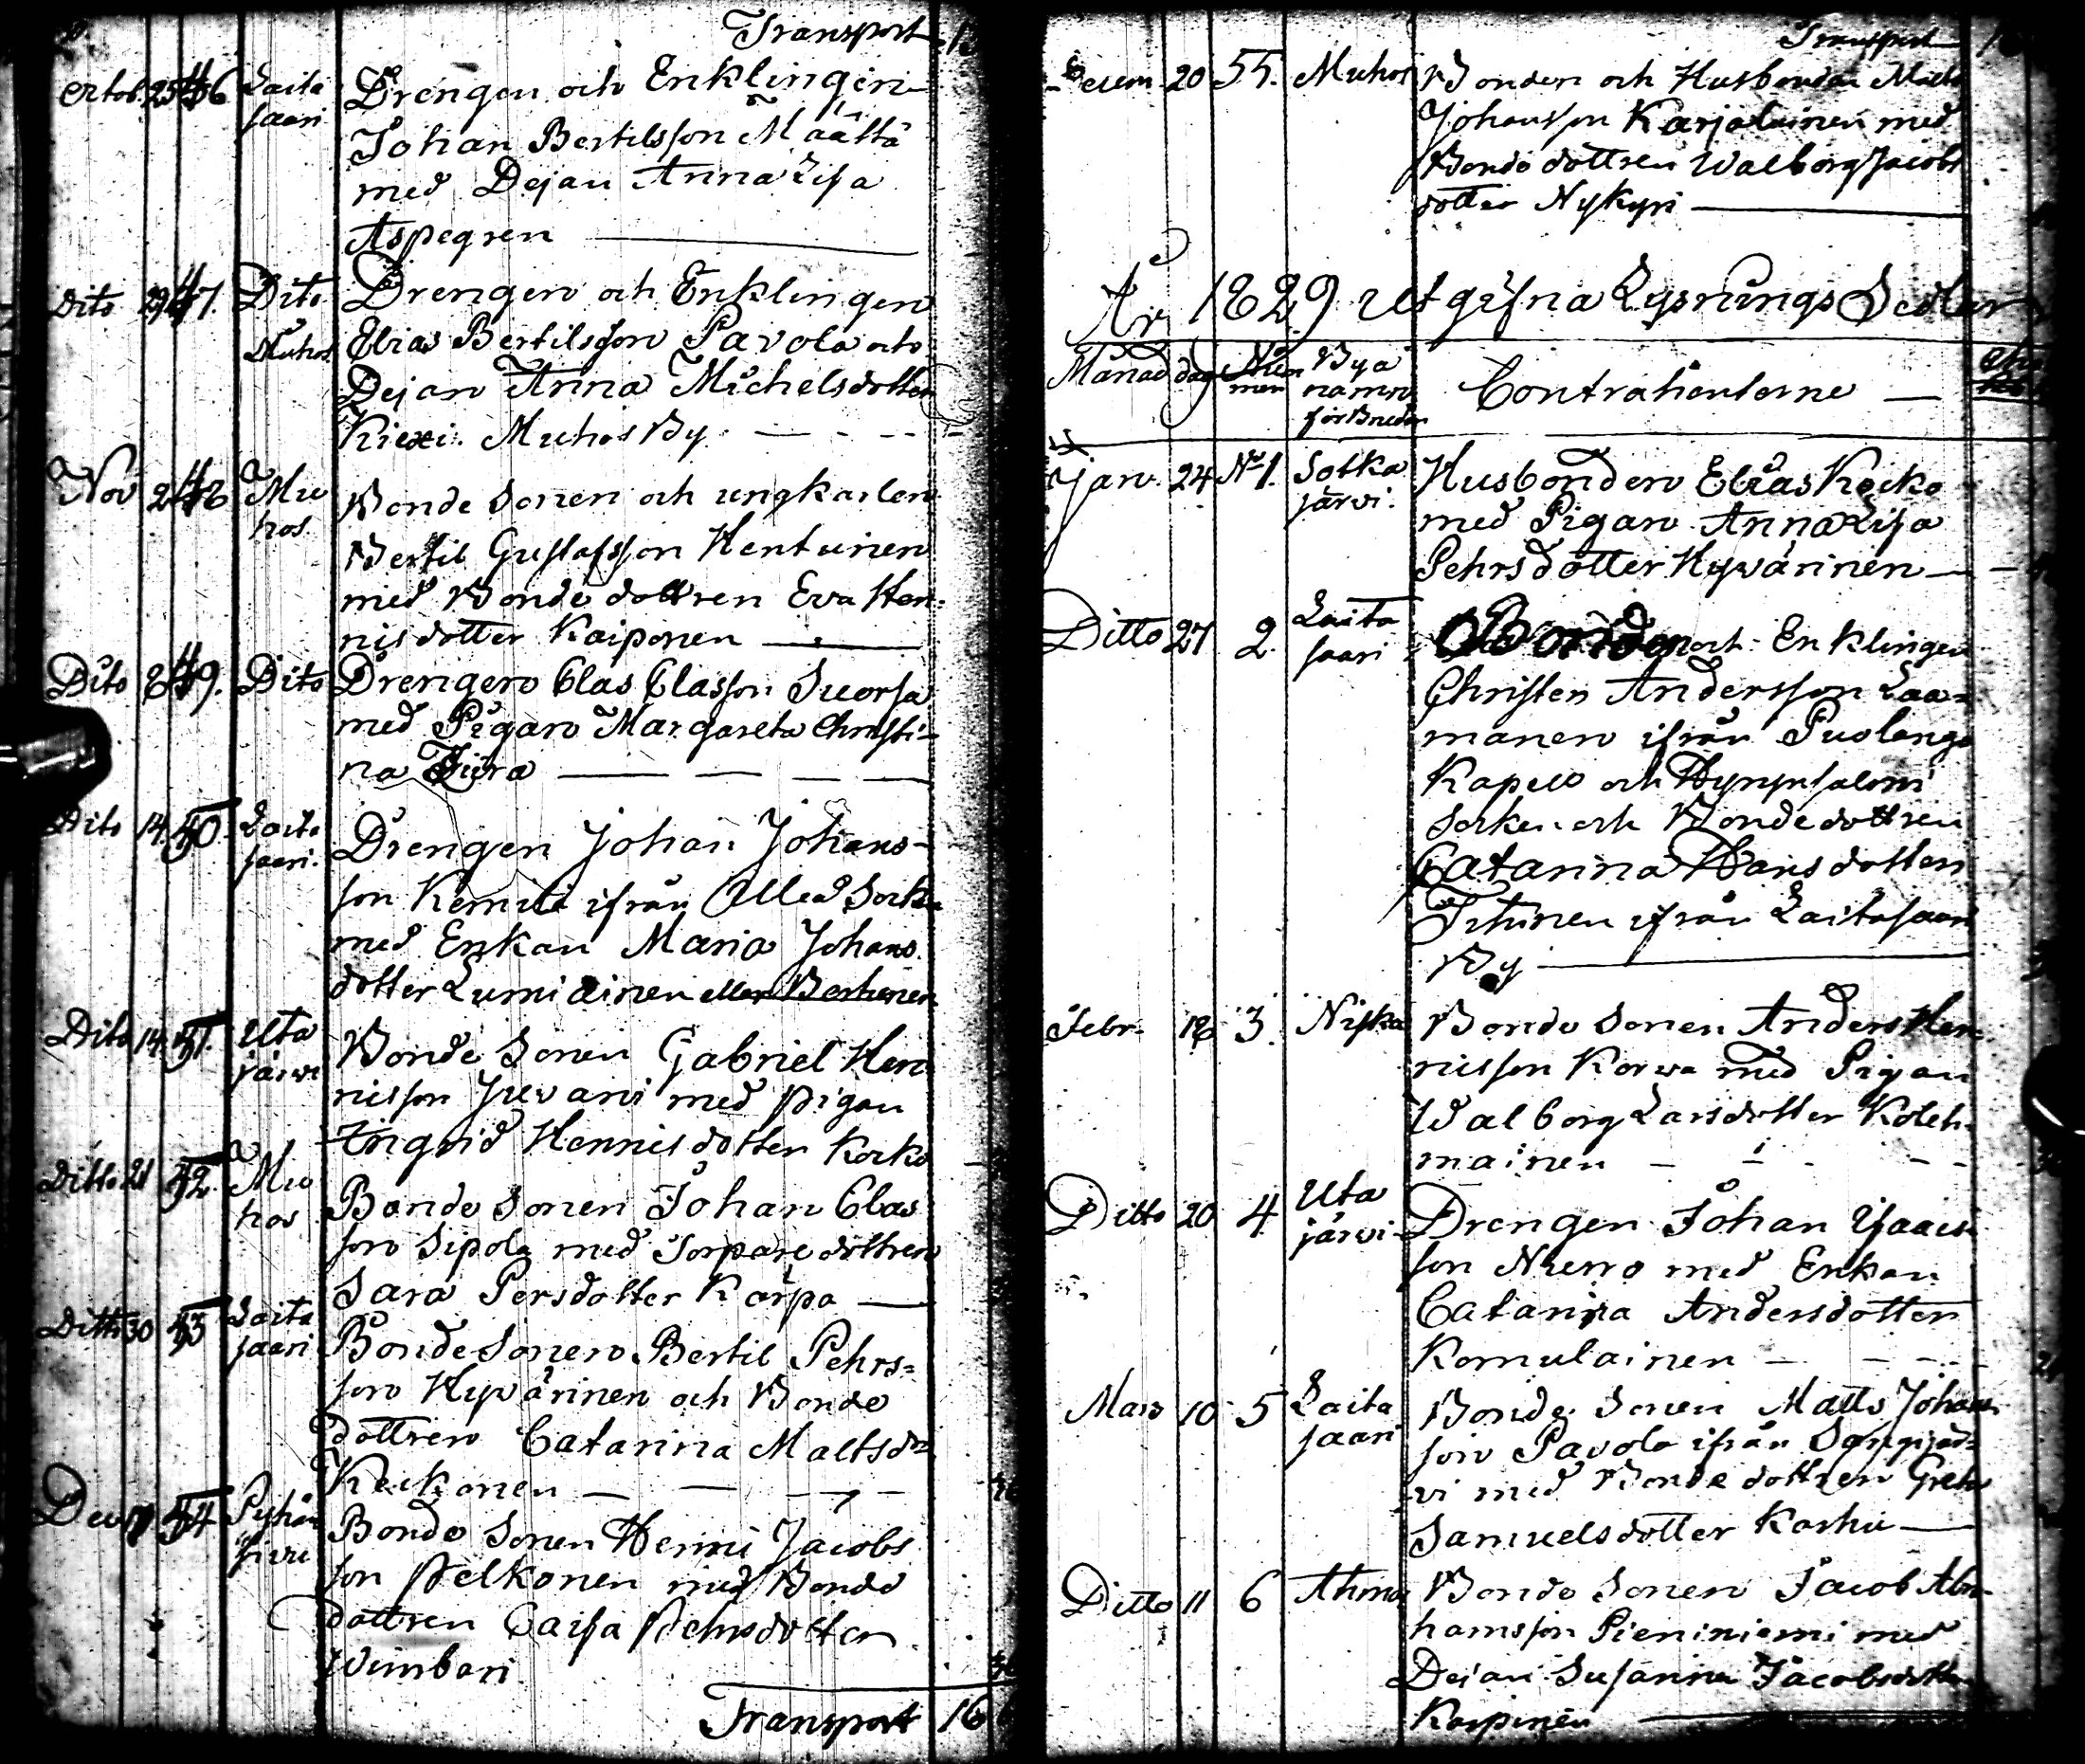 Transport
Octob. 25 46 Laita Drengen och Enklingen
saari Johan Bertilsson Määttä
med Dejan Anna Lisa
Aspegren
Dito 29 47. Dito Drengen och Enklingen
Muhos Elias Bertilsson Pavola och
Dejan Anna Michelsdotter
Kiexi. Muhos By.
Nov 2 48 Mu Bonde Sonen och ungkarlen
hos Bertil Gustafsson Hentuinen
med Bonde dottren Eva Hen-
nis dotter Kaiponen
Dito 8 49. Dito Drengen Clas Classon Suorsa
med Pigan Margareta Christi-
na
Dito 14 50. Laita Drengen Johan Johans-
saari. son Kemilä ifrån Uleå Sokn
med Enkan Maria Johans
dotter Lumiainen eller
Dito 14 51. Uta Bonde Sonen Gabriel Hen
järvi nisson Juvani med pigan
Ingrid Hennisdotter Korko
Ditto 21 52. Mu Bonde Sonen Johan Clas
hos son Sipola med Torpare dottren
Sara Persdotter Karpa
Ditto 30 53 Laita Bonde Sonen Bertil Pehrs=
saari son Hyvärinen och Bonde
dottren Catarina Mattsdr
Keikonen
Dec 7 54 Pyhän Bonde Sonen Henni Jacobs
sivu son Pelkonen med Bonde
dottren Caisa Pehrsdotter
Wimbari
Transport 16
Transport
Decem 20 55. Muhos Bonden och Husbonden Matts
Johansson Karjalainen med
Bonde dottren Walborg Jacobs
dotter Nykyri
År 1829 utgifna Lysnings Sedlar
Månad dag Num Bya Contrahenterne
mer namn
för Bruden
Jan. 24 No 1. Sotka Husbonden Elias Kocko
järvi. med Pigan Anna Lisa
Pehrsdotter Hyvärinen
Ditto 27 2. Laita Bonden och Enklingen
saari Christer Andersson Laa=
manen ifrån Puolango
Kapell och Hyrynsalmi
Socken och Bondedottren
Catarina Hansdotter
Tihinen ifrån Laitasaari
By
Febr. 18 3. Niska Bonde Sonen Anders Hen
nisson Korwa med Pigan
Walborg Larsdotter Koleh-
mainen
Ditto 20 4. Uta Drengen Johan Isaacs
järvi son Nurro med Enkan
Catarina Andersdotter
Komulainen
Mars 10 5 Laita Bonde Sonen Matts Johans
saari son Pavola ifrån Sangijär=
vi med Bonde dottren Greta
Samuelsdotter Karhu
Ditto 11 6 Ahmas Bonde Sonen Jacob Abra
hamsson Pieniniemi med
Dejan Susanna Jacobsdotter
Karpinen